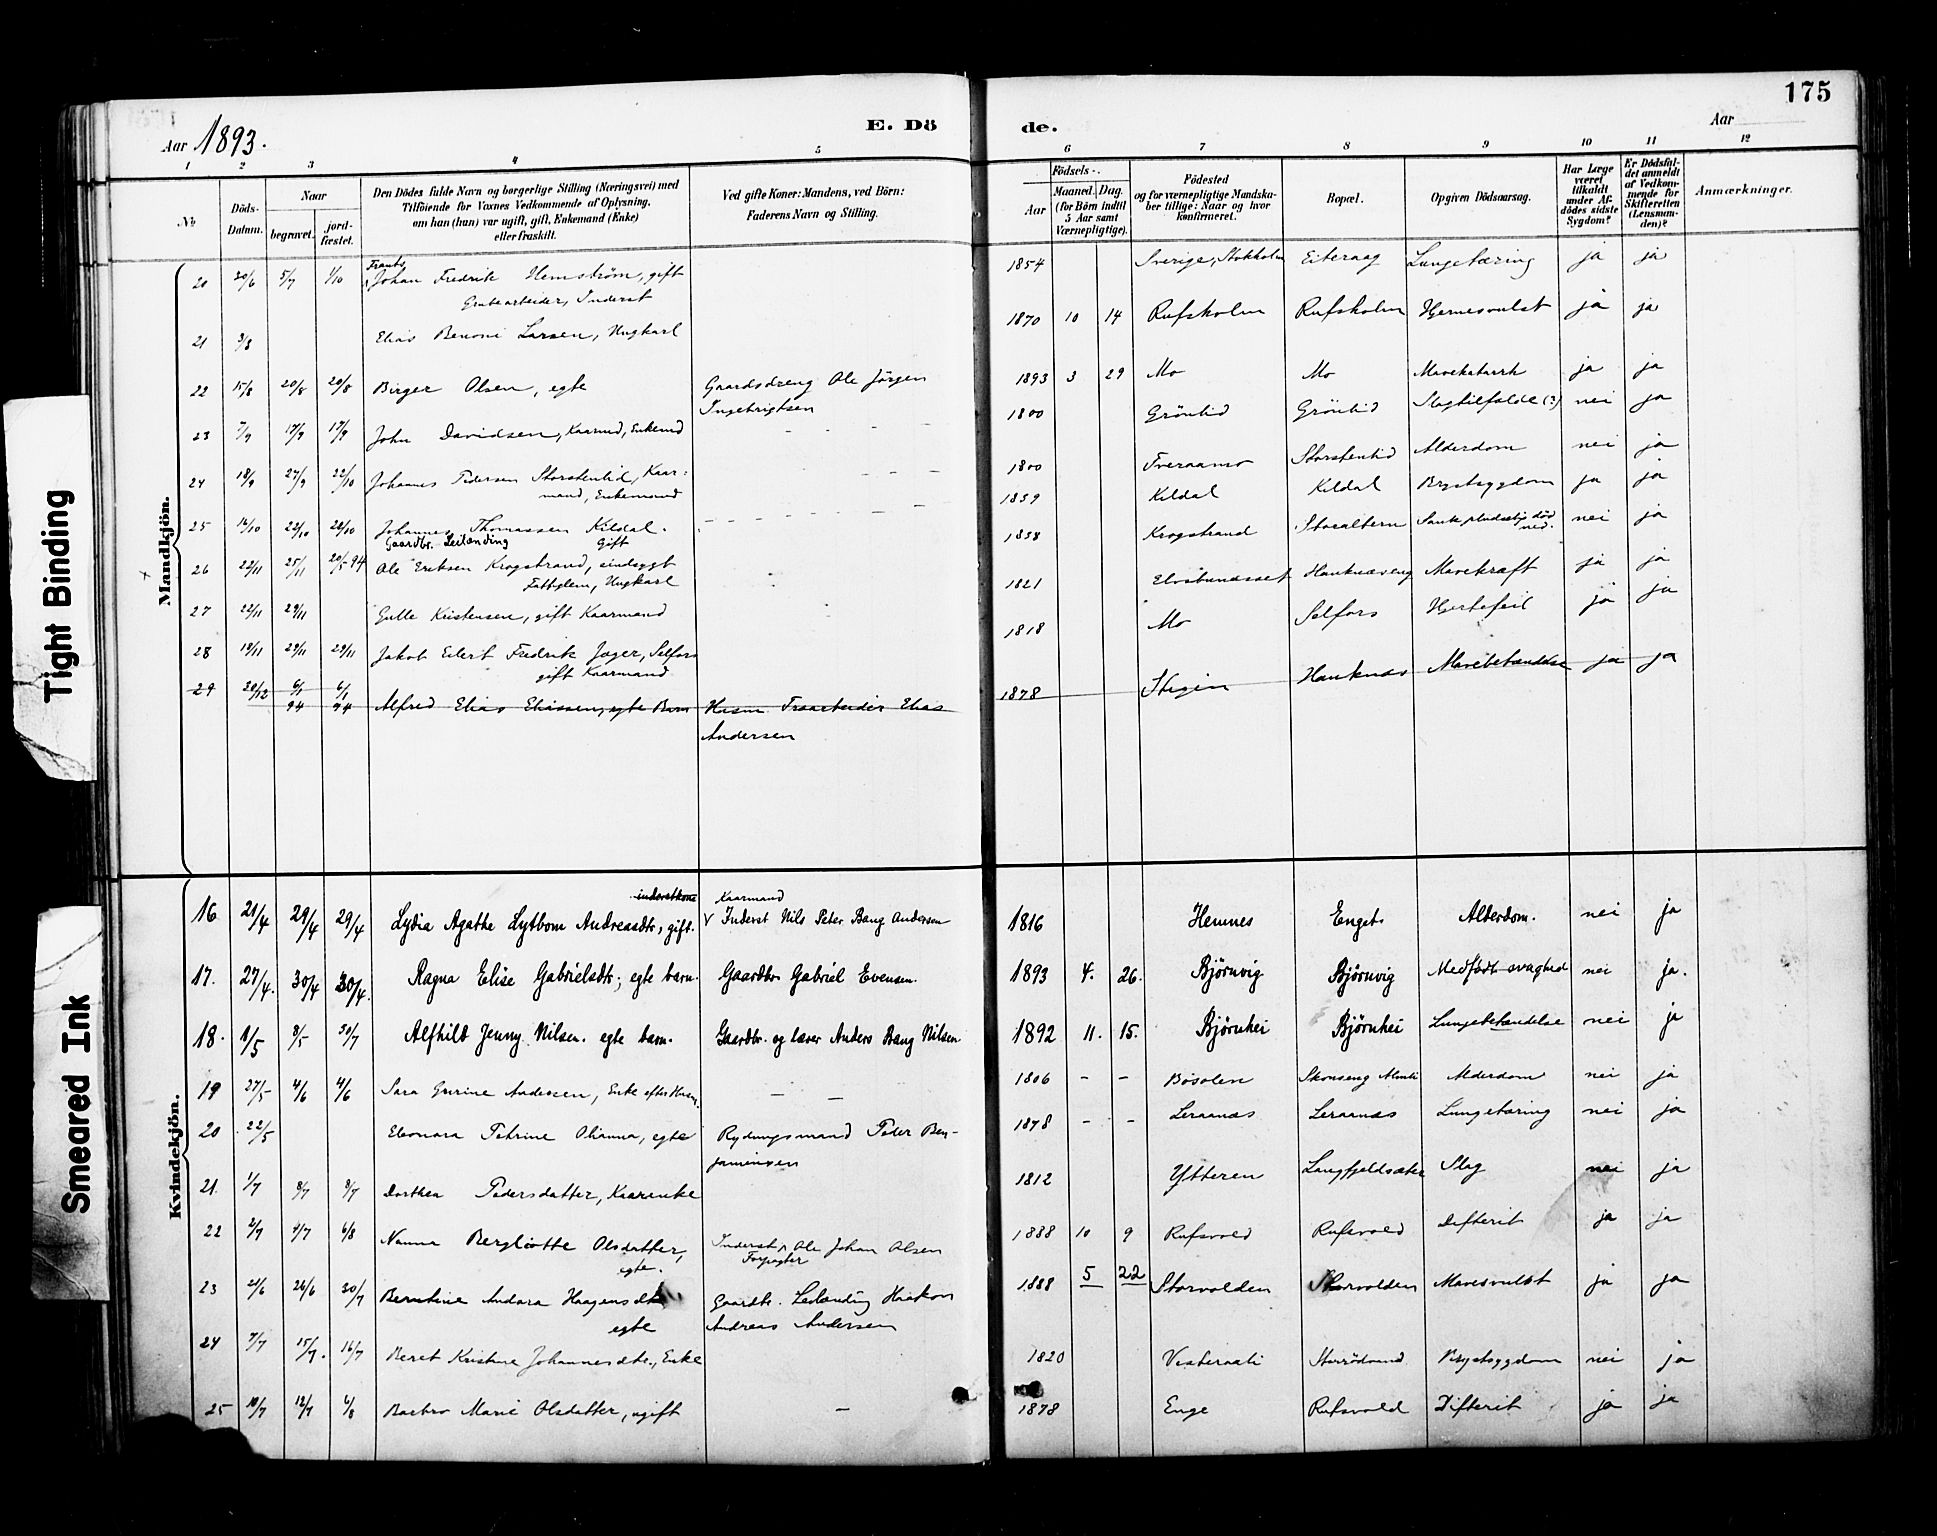 175
Aar 1893.
E. Dö
de.
Aar
1 2 3 4 5 6 7 8 9 10 11 12
No
Döds-
Datum.
Naar
begravet.
jord-
fæstet.
Den Dödes fulde Navn og borgerlige Stilling (Næringsvei) med
Tilföiende for Voxnes Vedkommende af Oplysning,
om han (hun) var ugift, gift, Enkemand (Enke)
eller fraskilt.
Ved gifte Koner: Mandens, ved Börn:
Faderens Navn og Stilling.
Födsels-.
Aar
Maaned. Dag.
(for Börn indtil
5 Aar samt
Værnepligtige).
Födested
og for værnepligtige Mandska-
ber tillige: Naar og hvor
konfirmeret.
Bopæl.
Opgiven Dödsaarsag.
Har Læge
været
tilkaldt
under Af-
dödes sidste
Sygdom?
Er Dödsfal-
det anmeldt
af Vedkom-
mende for
Skifteretten
(Lensman-
den)?
Anmærkninger.
Mandkjön.
20 20/6 5/7 1/10 Johan Fredrik Hemström, gift 1854 Sverige, Stokholm Eiteraag Lungetæring ja ja
Frants
Grubearbeider, Inderst
21 3/8 Elias Benoni Larsen, Ungkarl 1870 10 14 Rufsholm Rufsholm Hjernesvulst ja ja
22 15/8 20/8 20/8 Birger Olsen, egte Gaardsdreng Ole Jörgen 1893 3 29 Mo Mo Mavekatarrh ja ja
Ingebrigtsen
23 7/9 17/9 17/9 John Davidsen, Kaarmd, Enkemd 1800 Gröntid Gröntid Slagtilfælde (?) nei ja
24 18/9 27/9 22/10 Johannes Pedersen Storstentid, Kaar- 1800 Tveraamo Storstentid Alderdom nei ja
mand, Enkemand
25 12/10 22/10 22/10 Johannes Thomassen Kildal. 1859 Kildal Kildal Brystsygdom ja ja
Gaardbr. Leilænding Gift
26 22/11 25/11 20/5 94 Ole Eriksen Krogstrand, sindssygt 1858 Krogstrand Storaltern Sank pludselig död ned. nei ja
Fattiglem, Ungkarl
27 22/11 29/11 Gulle Kristensen, gift Kaarmand 1821 Hauknæseng Mavekræft ja ja
28 19/11 29/11 29/11 Jakob Eilert Fredrik Jæger, Selfors 1818 Mo Selfors Hjertefeil ja ja
gift Kaarmand
29 20/12 6/1 94 6/1 94 Alfred Elias Eliassen, egte Barn Husm Træarbeider Elias 1878 Stigen Hauknæs Mavebetændelse ja ja
Andersen
Kvindekjön.
inderstkone Kaarmand
16 21/4 29/4 29/4 Lydia Agathe Lytbom Andreasdtr, gift. Inderst Nils Peter Bang Andersen 1816 Hemnes Enget Alderdom. nei ja
17. 27/4. 30/4 30/4. Ragna Elise Gabrielsdtr; egte barn. Gaardbr. Gabriel Evensen. 1893 4. 26. Björnvig Björnvig Medfödt svaghed nei ja.
18. 1/5 8/5 30/7 Alfhild Jenny Nilsen. egte barn. Gaardbr. og lærer Anders Bang Nilsen 1892 11. 15. Björnhei Björnhei Lungebetændelse nei ja
19 27/5 4/6 4/6 Sara Gurine Andersen, Enke efter Husm. — — 1806 – – Bösolen Skonseng nei ja
Alderdom
20 22/5 Eleonora Petrine Olianna, egte Rydningsmand Peder Ben- 1878 – – Leraanæs Leraanæs Lungetæring nei ja
jaminsen
21. 1/7 8/7 8/7 Dorthea Pedersdatter, Kaarenke 1812 Ytteren Langfjeldsæter Slag nei ja
22 2/7 4/7 6/8 Nanna Bergliotte Olsdatter, Inderst, Ole Johan Olsen 1888 10 9 Rufsvold Rufsvold Difterit ja ja
egte. Forpagter
23 21/6 26/6 30/7 Berntine Andora Haagensdtr Gaardbr. Leilænding Haakon 1888 5 22 Storvolden Storvolden Mavesvulst ja ja
egte Andreas Andersen
24 7/7 15/7. 16/7 Beret Kristine Johannesdtr., Enke 1820 Vesteraali Brystsygdom nei ja
25 10/7 12/7 6/8 Barbro Marie Olsdatter, ugift — 1878 Enge Rufsvold Difterit ja ja
Tight Binding
Smeared Ink